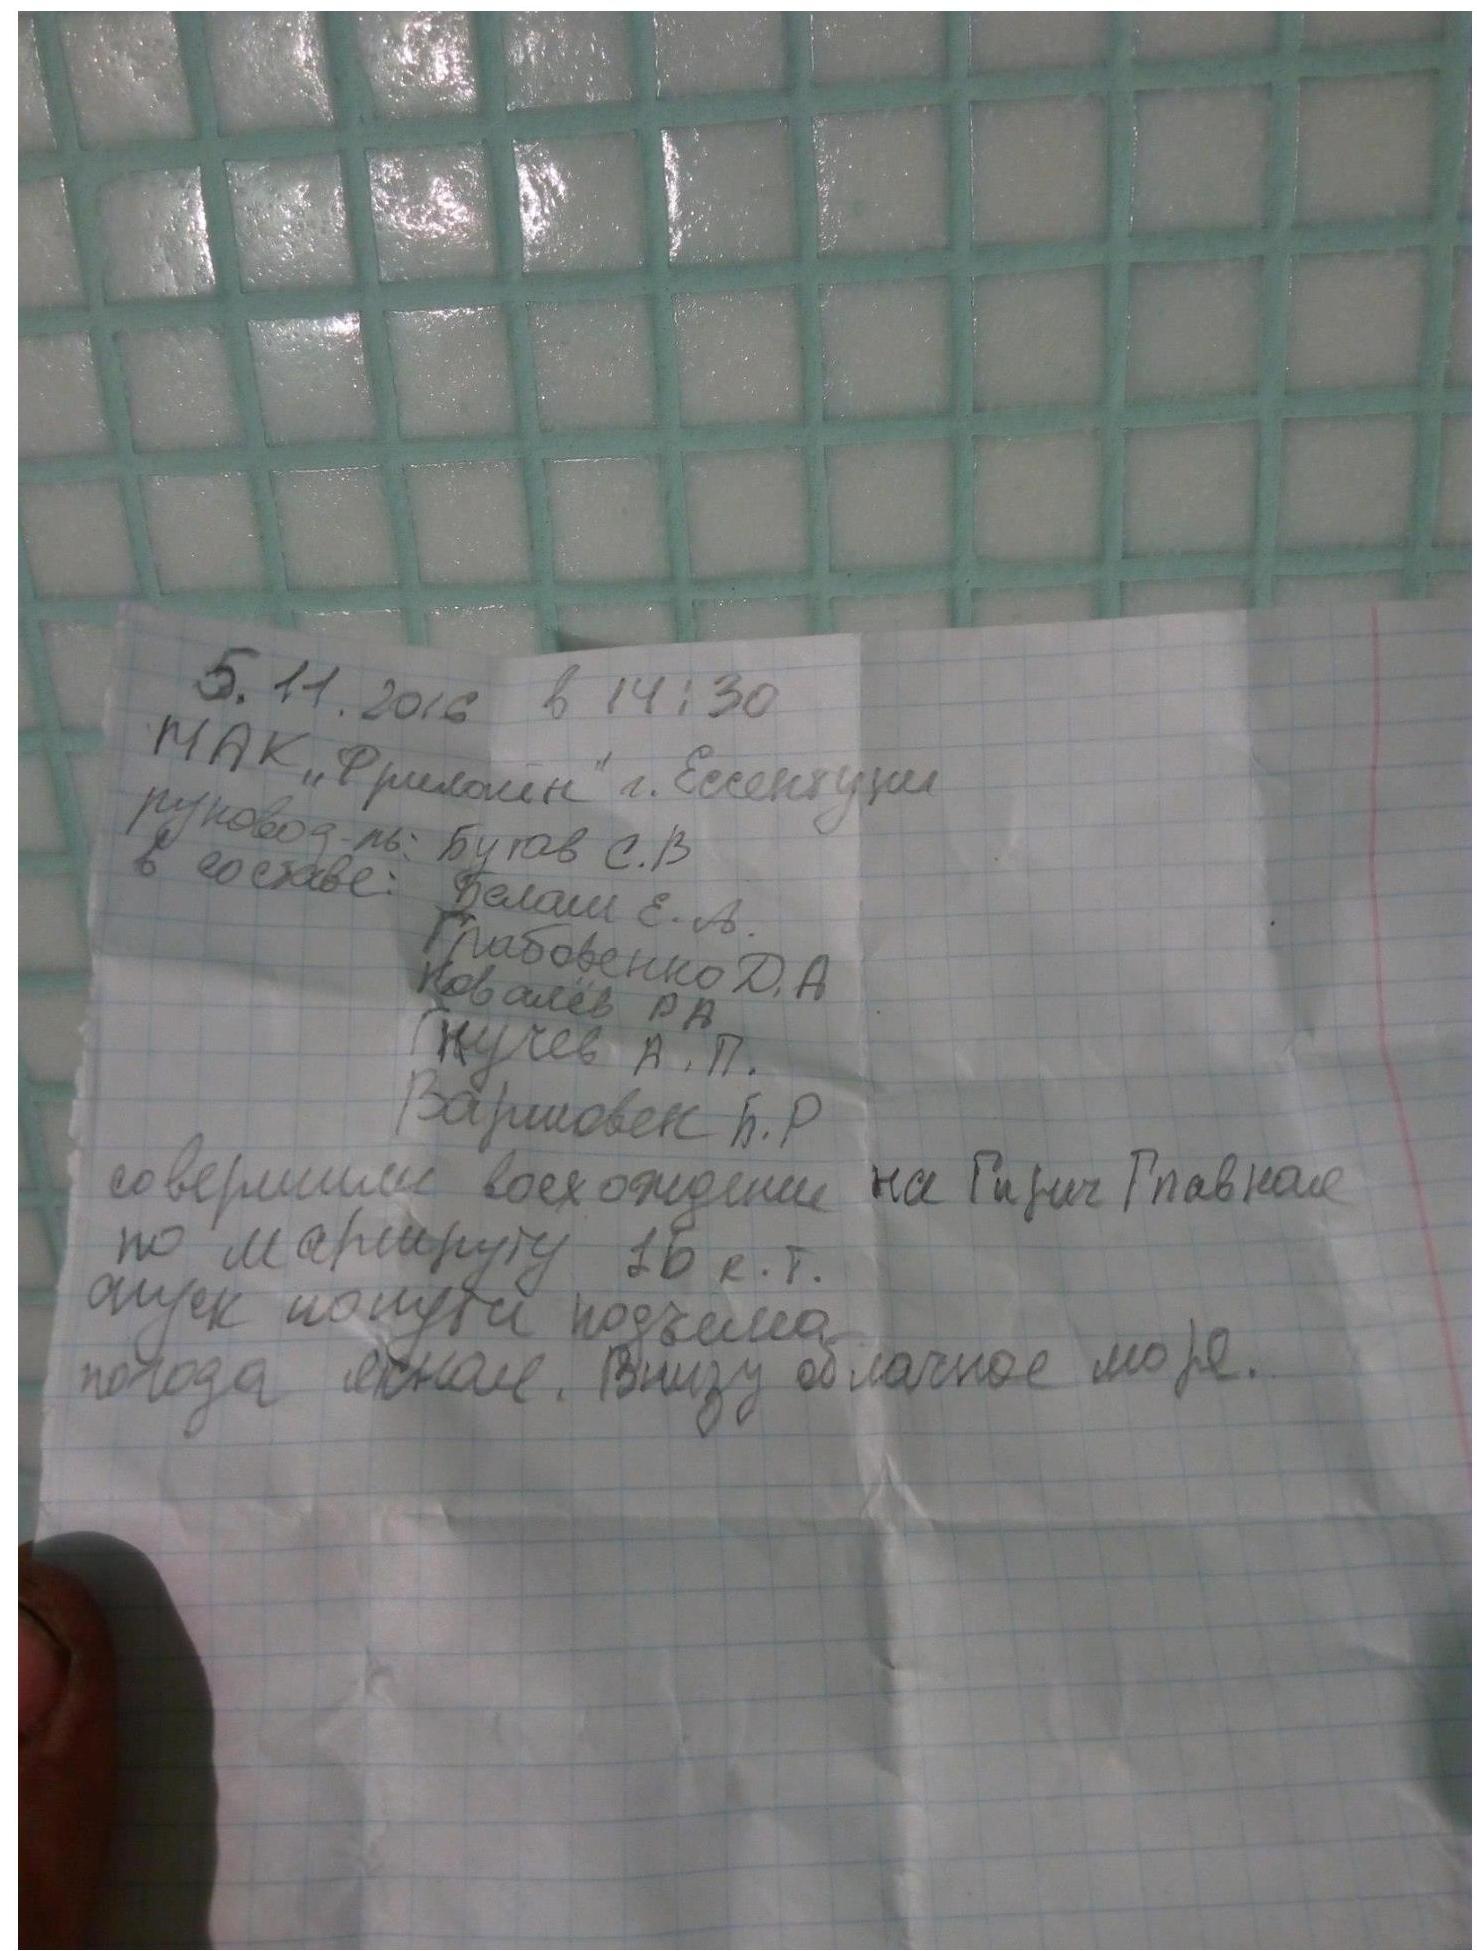 5.11.2016 в 14:30
МАК „Фрилайн" г. Ессентуки
руковод-ль: Бугав С.В
в составе: Белаш Е.А.
Грабовенко Д.А
Ковалёв РА
Гнучев А.П.
Варшовек Б.Р
совершили восхождение на Гирич Главная
по маршруту 1Б к.т.
спуск по пути подъема
погода ясная. Внизу облачное море.